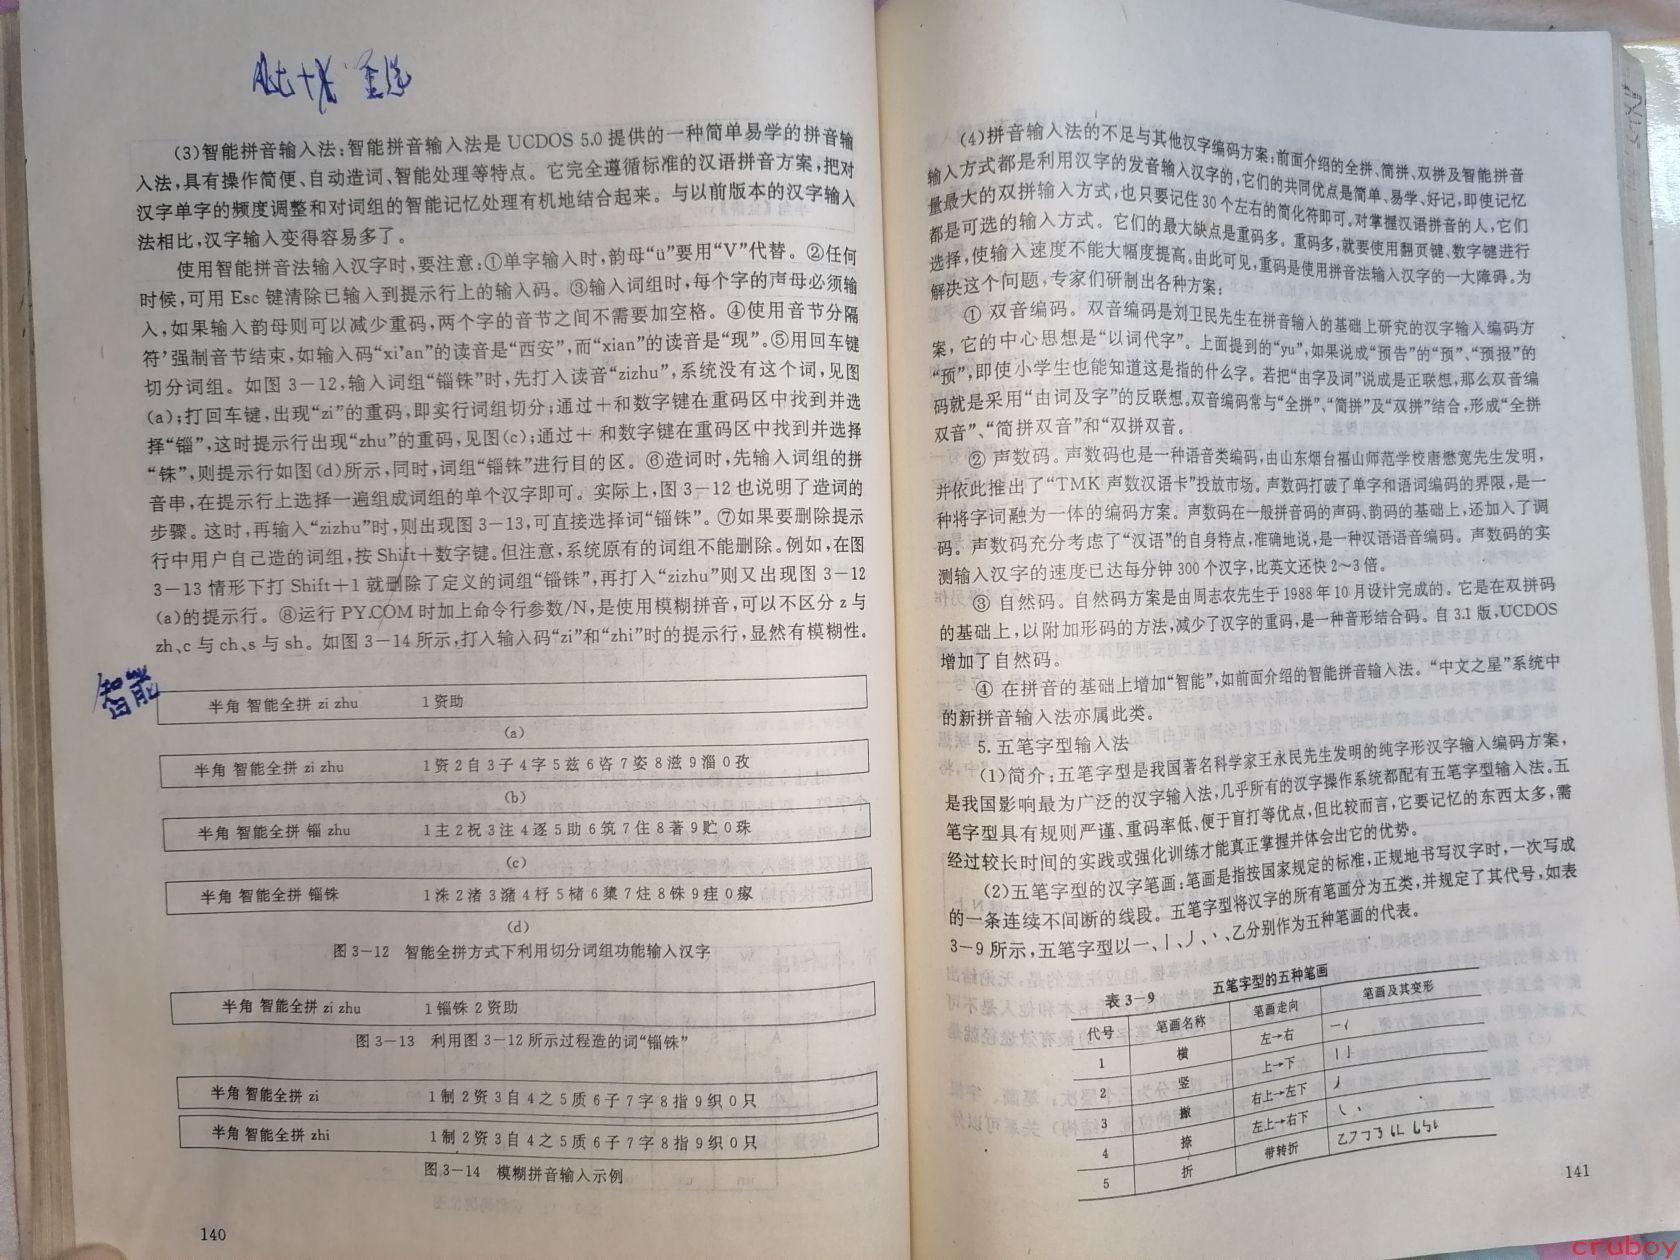 (3)智能拼音输入法:智能拼音输入法是 UCDOS 5.0 提供的一种简单易学的拼音输
入法,具有操作简便、自动造词、智能处理等特点。它完全遵循标准的汉语拼音方案,把对
汉字单字的频度调整和对词组的智能记忆处理有机地结合起来。与以前版本的汉字输入
法相比,汉字输入变得容易多了。
使用智能拼音法输入汉字时,要注意:①单字输入时,韵母“ü”要用“V”代替。②任何
时候,可用 Esc 键清除已输入到提示行上的输入码。③输入词组时,每个字的声母必须输
入,如果输入韵母则可以减少重码,两个字的音节之间不需要加空格。④使用音节分隔
符'强制音节结束,如输入码“xi'an”的读音是“西安”,而“xian”的读音是“现”。⑤用回车键
切分词组。如图 3-12,输入词组“锱铢”时,先打入读音“zizhu”,系统没有这个词,见图
(a);打回车键,出现“zi”的重码,即实行词组切分;通过+和数字键在重码区中找到并选
择“锱”,这时提示行出现“zhu”的重码,见图(c);通过+ 和数字键在重码区中找到并选择
“铢”,则提示行如图(d)所示,同时,词组“锱铢”进行目的区。⑥造词时,先输入词组的拼
音串,在提示行上选择一遍组成词组的单个汉字即可。实际上,图 3-12 也说明了造词的
步骤。这时,再输入“zizhu”时,则出现图 3-13,可直接选择词“锱铢”。⑦如果要删除提示
行中用户自己造的词组,按 Shift+数字键。但注意,系统原有的词组不能删除。例如,在图
3-13 情形下打 Shift+1 就删除了定义的词组“锱铢”,再打入“zizhu”则又出现图 3-12
(a)的提示行。⑧运行 PY.COM 时加上命令行参数/N,是使用模糊拼音,可以不区分 z 与
zh、c 与 ch、s 与 sh。如图 3-14 所示,打入输入码“zi”和“zhi”时的提示行,显然有模糊性。
智能
半角 智能全拼 zi zhu 1 资助
(a)
半角 智能全拼 zi zhu 1资 2自 3子 4字 5兹 6咨 7姿 8滋 9淄 0孜
(b)
半角 智能全拼 锱 zhu 1主 2祝 3注 4逐 5助 6筑 7住 8著 9贮 0珠
(c)
半角 智能全拼 锱铢 1洙 2渚 3潴 4杼 5槠 6橥 7炷 8铢 9疰 0瘃
(d)
图 3-12 智能全拼方式下利用切分词组功能输入汉字
半角 智能全拼 zi zhu 1 锱铢 2 资助
图 3-13 利用图 3-12 所示过程造的词“锱铢”
半角 智能全拼 zi 1制 2资 3自 4之 5质 6子 7字 8指 9织 0只
半角 智能全拼 zhi 1制 2资 3自 4之 5质 6子 7字 8指 9织 0只
图 3-14 模糊拼音输入示例
140
(4)拼音输入法的不足与其他汉字编码方案:前面介绍的全拼、简拼、双拼及智能拼音
输入方式都是利用汉字的发音输入汉字的,它们的共同优点是简单、易学、好记,即使记忆
量最大的双拼输入方式,也只要记住 30 个左右的简化符即可。对掌握汉语拼音的人,它们
都是可选的输入方式。它们的最大缺点是重码多。重码多,就要使用翻页键、数字键进行
选择,使输入速度不能大幅度提高。由此可见,重码是使用拼音法输入汉字的一大障碍。为
解决这个问题,专家们研制出各种方案:
① 双音编码。双音编码是刘卫民先生在拼音输入的基础上研究的汉字输入编码方
案,它的中心思想是“以词代字”。上面提到的“yu”,如果说成“预告”的“预”、“预报”的
“预”,即使小学生也能知道这是指的什么字。若把“由字及词”说成是正联想,那么双音编
码就是采用“由词及字”的反联想。双音编码常与“全拼”、“简拼”及“双拼”结合,形成“全拼
双音”、“简拼双音”和“双拼双音。
② 声数码。声数码也是一种语音类编码,由山东烟台福山师范学校唐懋宽先生发明,
并依此推出了“TMK 声数汉语卡”投放市场。声数码打破了单字和语词编码的界限,是一
种将字词融为一体的编码方案。声数码在一般拼音码的声码、韵码的基础上,还加入了调
码。声数码充分考虑了“汉语”的自身特点,准确地说,是一种汉语语音编码。声数码的实
测输入汉字的速度已达每分钟 300 个汉字,比英文还快 2~3 倍。
③ 自然码。自然码方案是由周志农先生于 1988 年 10 月设计完成的。它是在双拼码
的基础上,以附加形码的方法,减少了汉字的重码,是一种音形结合码。自 3.1 版,UCDOS
增加了自然码。
④ 在拼音的基础上增加“智能”,如前面介绍的智能拼音输入法。“中文之星”系统中
的新拼音输入法亦属此类。
5. 五笔字型输入法
(1)简介:五笔字型是我国著名科学家王永民先生发明的纯字形汉字输入编码方案,
是我国影响最为广泛的汉字输入法,几乎所有的汉字操作系统都配有五笔字型输入法。五
笔字型具有规则严谨、重码率低、便于盲打等优点,但比较而言,它要记忆的东西太多,需
经过较长时间的实践或强化训练才能真正掌握并体会出它的优势。
(2)五笔字型的汉字笔画:笔画是指按国家规定的标准,正规地书写汉字时,一次写成
的一条连续不间断的线段。五笔字型将汉字的所有笔画分为五类,并规定了其代号,如表
3-9 所示,五笔字型以一、丨、丿、丶、乙分别作为五种笔画的代表。
表 3-9 五笔字型的五种笔画
代号 笔画名称 笔画走向 笔画及其变形
1 横 左→右
2 竖 上→下
3 撇 右上→左下
4 捺 左上→右下
5 折 带转折
141
cruboy